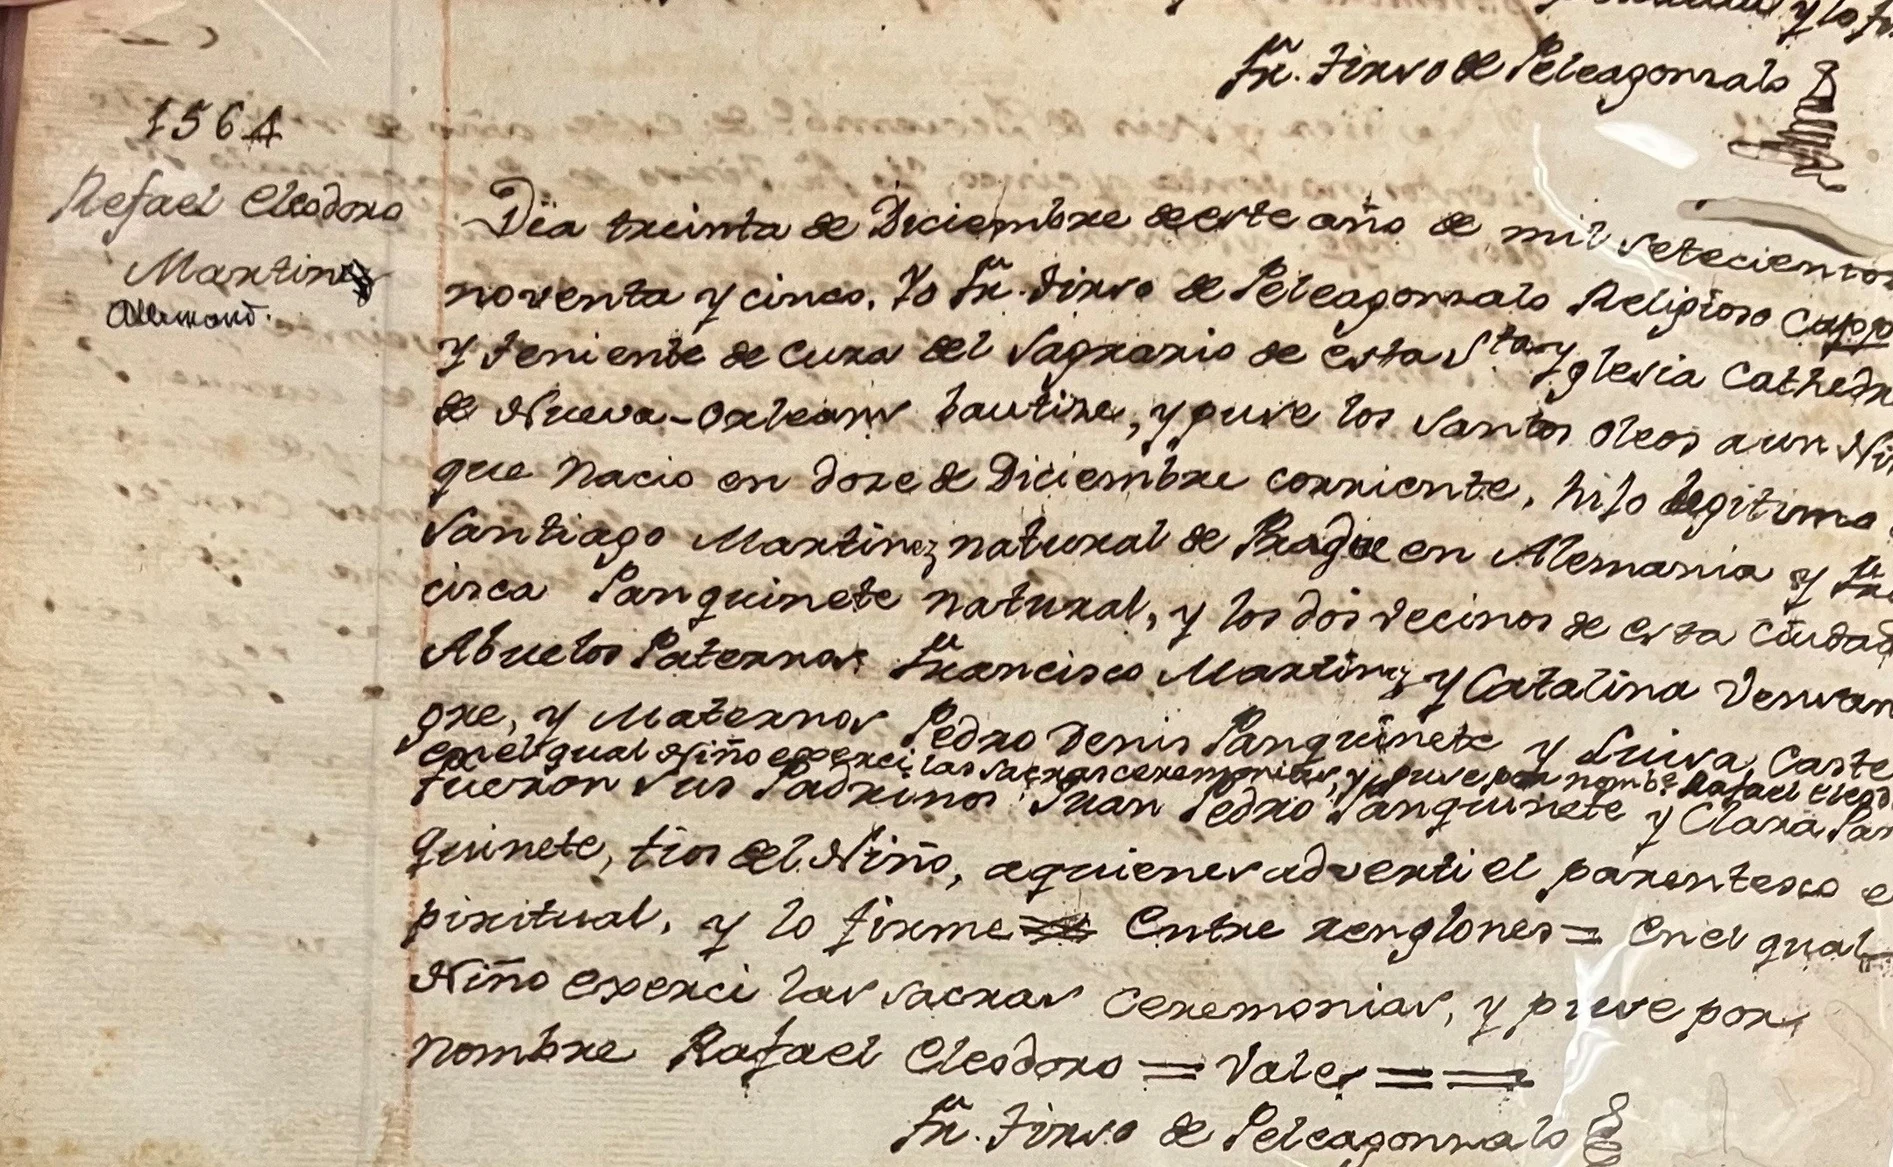 y lo fir
Fr. Tirso de Peleagonzalo
1564
Rafael Eleodoro
Martinez
Allemand.
Dia treinta de Diciembre de este año de mil setecientos
noventa y cinco. Yo Fr. Tirso de Peleagonzalo Religioso Capp
y teniente de Cura del Sagrario de esta Sta Yglesia Cathedr
de Nueva-Orleans bautize, y puse los Santos Oleos a un Niñ
que Nacio en doze de Diciembre corriente, hijo legitimo
Santiago Martinez natural de Prague en Alemania y Fr
cisca Sanguinete natural, y los dos vecinos de esta Ciudad
Abuelos Paternos Francisco Martinez y Catalina
gre, y Maternos Pedro Denis Sanguinete y Luisa Caste
en el qual Niño exerci las sacras ceremonias, y puse por nombe Rafael Eleod
fueron sus Padrinos Juan Pedro Sanguinete y Clara San
quinete, tios del Niño, a quienes adverti el parentesco e
piritual, y lo firme Entre renglones = en el qual
Niño exerci las sacras Ceremonias, y puse por
nombre Rafael Eleodoro = Vale = =
Fr. Tirso de Peleagonzalo